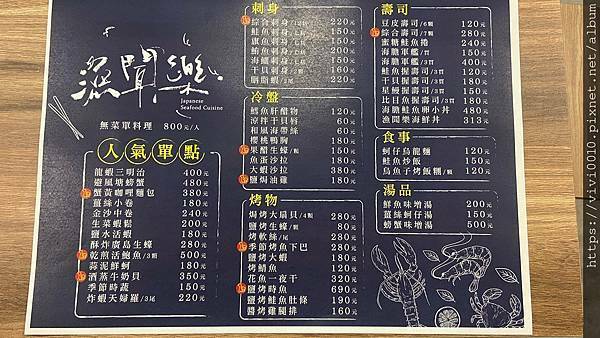 漁聞樂
Japanese
Seafood Cuisine
無菜單料理 800元/人
人氣單點
龍蝦三明治 400元
避風塘螃蟹 480元
蟹黃咖哩麵包 380元
薑絲小卷 180元
金沙中卷 240元
生菜蝦鬆 200元
鹽水活蝦 180元
酥炸廣島生蠔 280元
乾煎活鮑魚/3顆 500元
蒜泥鮮蚵 180元
酒蒸牛奶貝 350元
季節時蔬 150元
炸蝦天婦羅/3尾 220元
刺身
220元
220元
150元
150元
220元
220元
胭脂蝦/2尾 220元
冷盤
鱈魚肝醋物 120元
涼拌干貝唇 60元
和風海帶絲 60元
櫻桃鴨胸 180元
果醋生蠔/1顆 150元
魚蛋沙拉 180元
大蝦沙拉 180元
鹽焗油雞 180元
烤物
焗烤大扇貝/4顆 280元
鹽烤生蠔/1顆 80元
烤軟絲/尾 290元
季節烤魚下巴 280元
鹽烤大蝦 180元
烤鯖魚 120元
花魚一夜干 320元
鹽烤時魚 690元
鹽烤鮭魚肚條 190元
醬烤雞腿排 160元
壽司
豆皮壽司/6顆 120元
綜合壽司/7顆 280元
蜜糖鮭魚捲 240元
海膽軍艦/1貫 300元
海膽軍艦 300元
鮭魚握壽司/3貫 120元
干貝握壽司/3貫 180元
星鰻握壽司/3貫 150元
比目魚握壽司/3貫 180元
海膽鮭魚卵小丼 480元
漁聞樂海鮮丼 313元
食事
蚵仔烏龍麵 120元
鮭魚炒飯 150元
烏魚子烤飯糰/1顆 120元
湯品
鮮魚味增湯 200元
薑絲蚵仔湯 150元
螃蟹味增湯 500元
https://vivi0010.pixnet.net/album